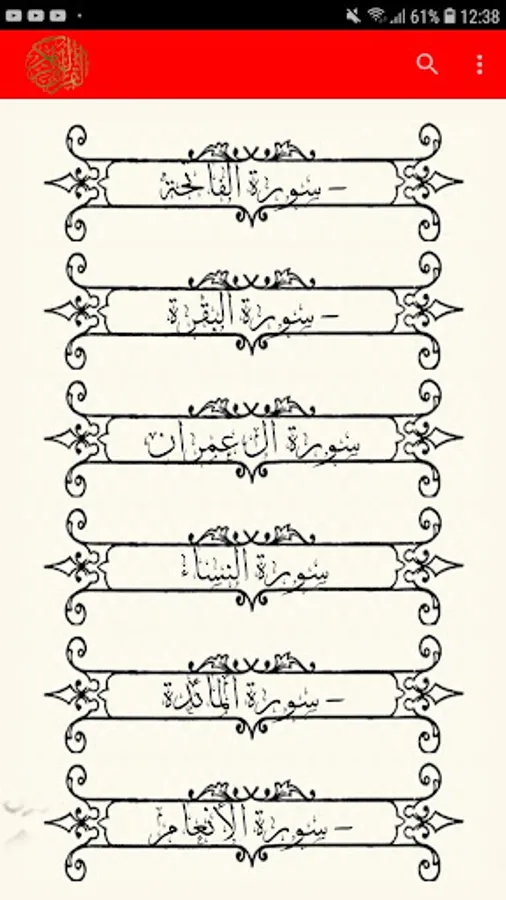 61% 12:38
– سورة الفاتحة
– سورة البقرة
سورة آل عمران
سورة النساء
– سورة المائدة
– سورة الأنعام